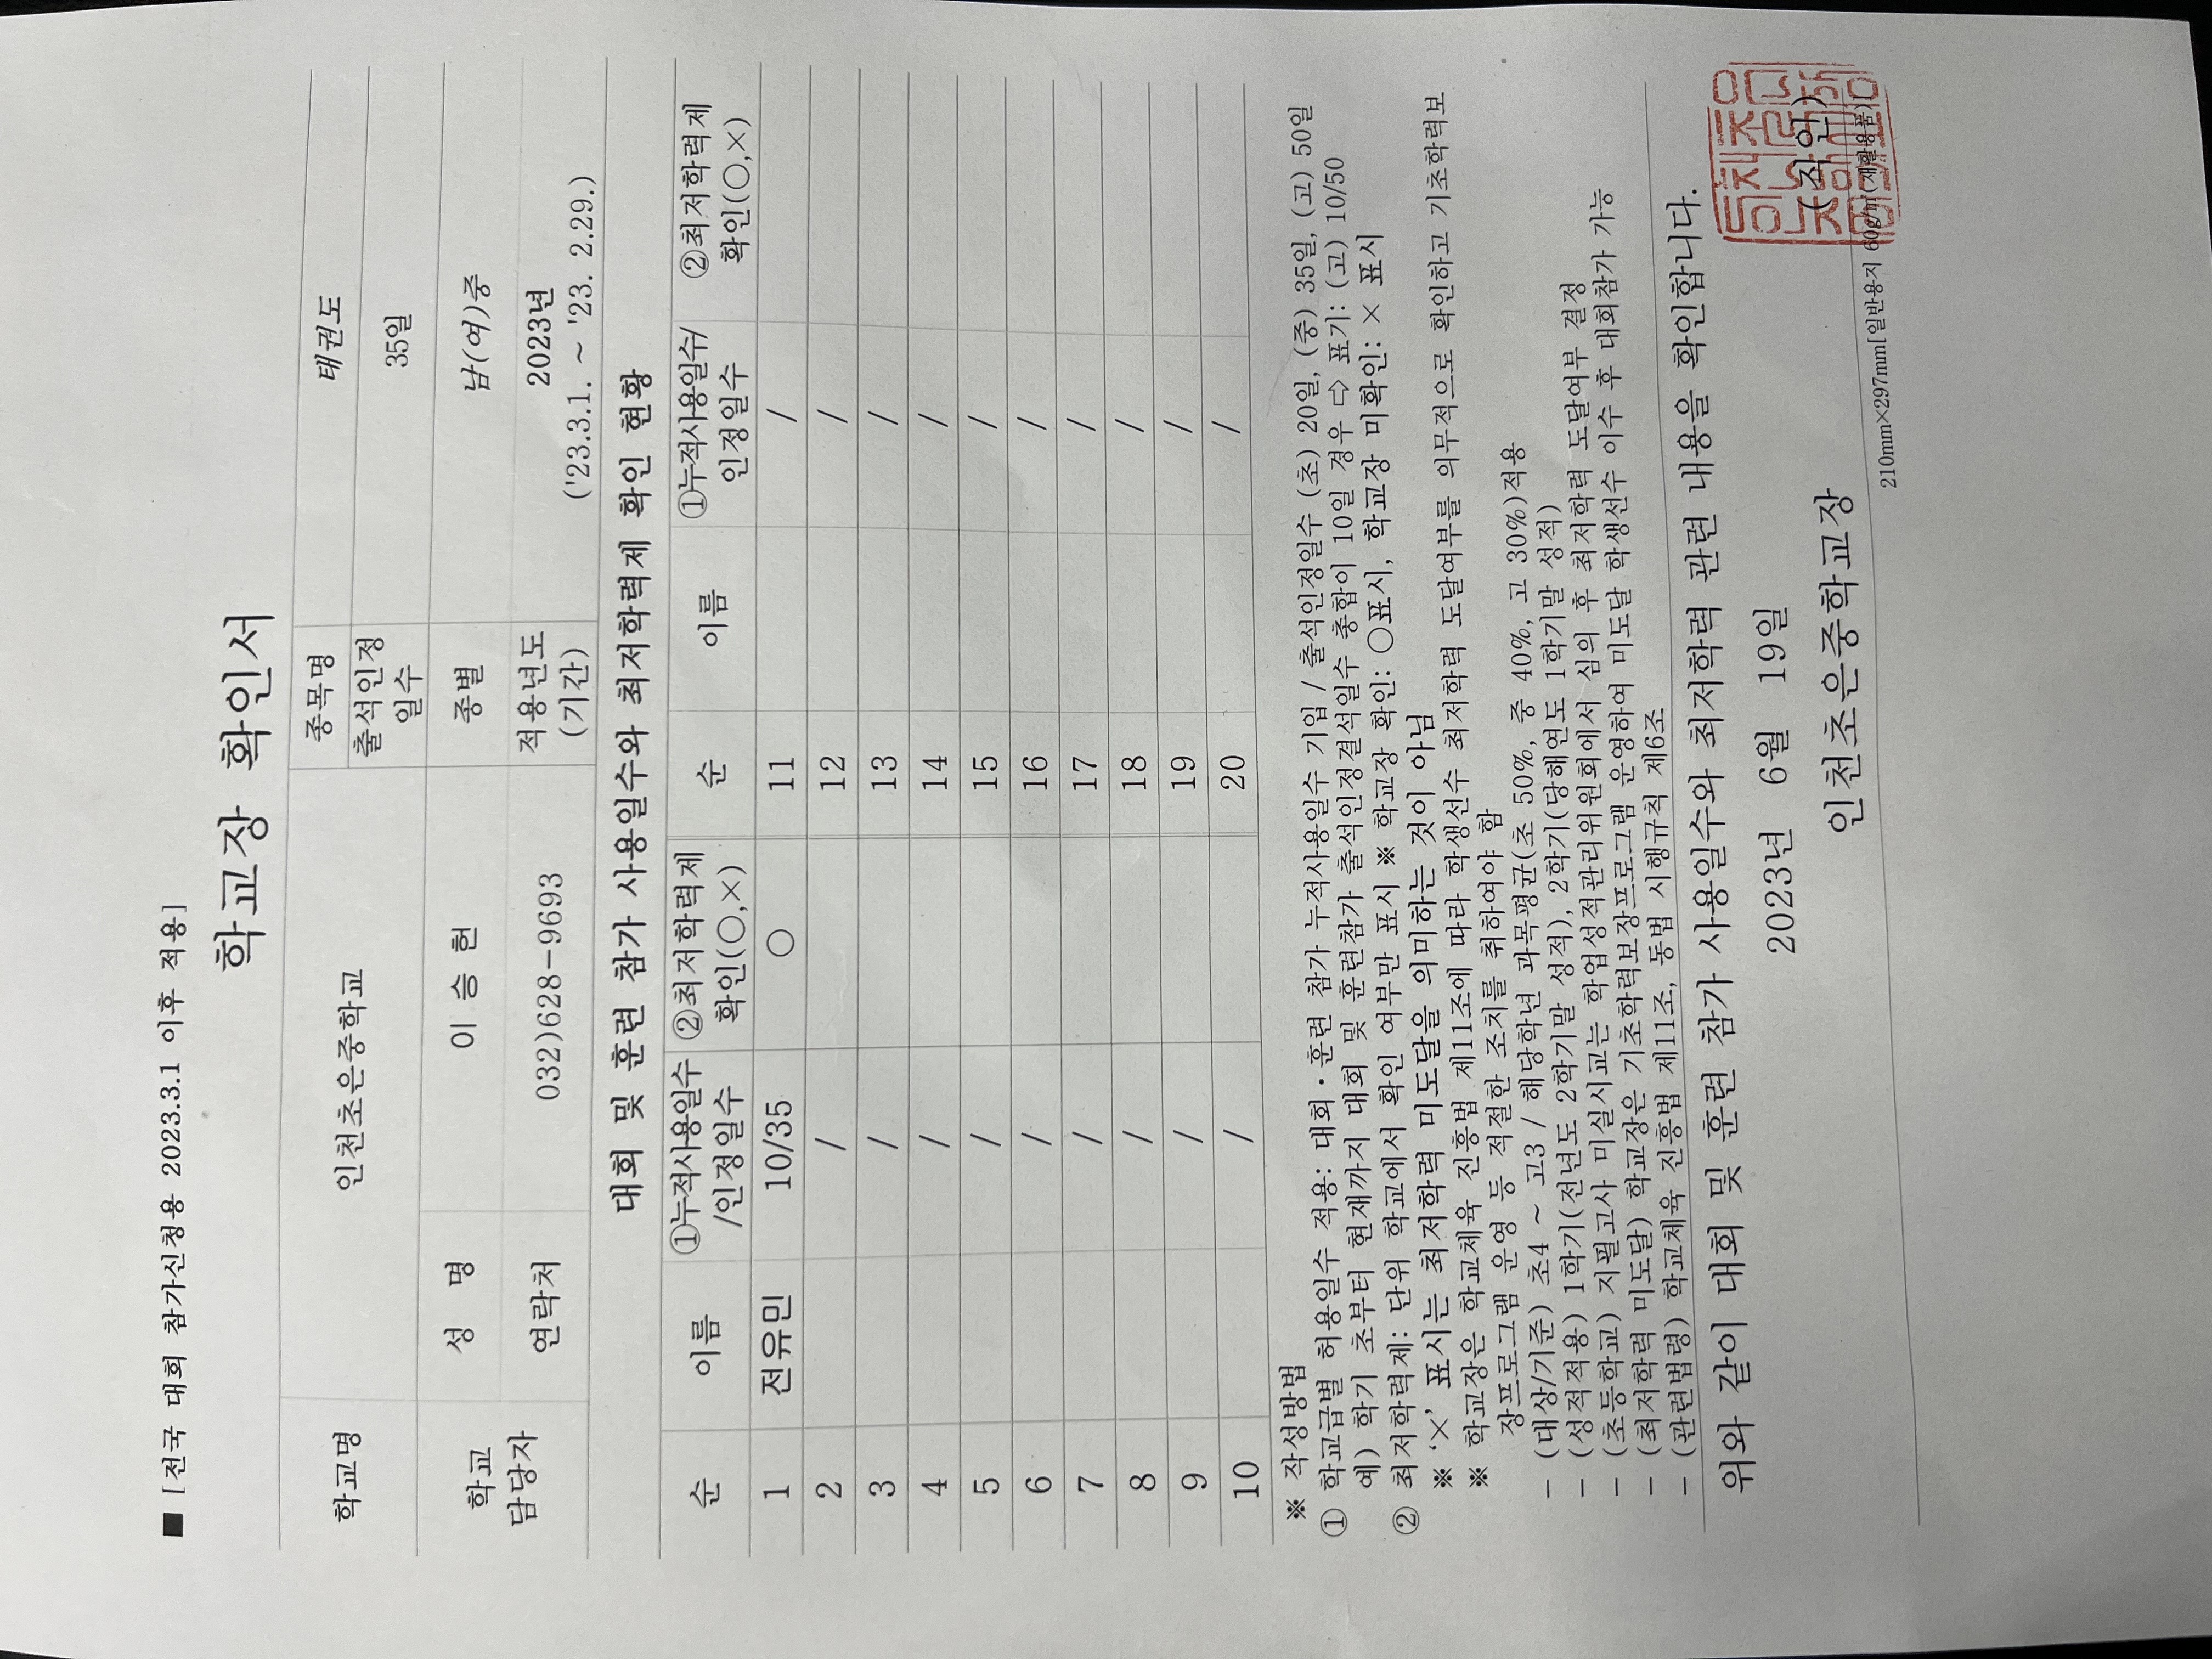 ■ [전국 대회 참가신청용 2023.3.1 이후 적용]
학교장 확인서
학교명 인천초은중학교 종목명 태권도
출석인정 일수 35일
학교 담당자 성 명 이 승 헌 종별 남(여)중
연락처 032)628-9693 적용년도 (기간) 2023년 ('23.3.1. ~ '23. 2.29.)
대회 및 훈련 참가 사용일수와 최저학력제 확인 현황
순 이름 ①누적사용일수 /인정일수 ②최저학력제 확인(○,×) 순 이름 ①누적사용일수/ 인정일수 ②최저학력제 확인(○,×)
1 전유민 10/35 ○ 11 /
2 / 12 /
3 / 13 /
4 / 14 /
5 / 15 /
6 / 16 /
7 / 17 /
8 / 18 /
9 / 19 /
10 / 20 /
※ 작성방법
① 학교급별 허용일수 적용: 대회·훈련 참가 누적사용일수 기입 / 출석인정일수 (초) 20일, (중) 35일, (고) 50일
예) 학기 초부터 현재까지 대회 및 훈련참가 출석인정결석일수 총합이 10일 경우 ⇨ 표기: (고) 10/50
② 최저학력제: 단위 학교에서 확인 여부만 표시 ※ 학교장 확인: ○표시, 학교장 미확인: × 표시
※ ‘×’ 표시는 최저학력 미도달을 의미하는 것이 아님
※ 학교장은 학교체육 진흥법 제11조에 따라 학생선수 최저학력 도달여부를 의무적으로 확인하고 기초학력보
장프로그램 운영 등 적절한 조치를 취하여야 함
- (대상/기준) 초4 ~ 고3 / 해당학년 과목평균(초 50%, 중 40%, 고 30%)적용
- (성적적용) 1학기(전년도 2학기말 성적), 2학기(당해연도 1학기말 성적)
- (초등학교) 지필고사 미실시교는 학업성적관리위원회에서 심의 후 최저학력 도달여부 결정
- (최저학력 미도달) 학교장은 기초학력보장프로그램 운영하여 미도달 학생선수 이수 후 대회참가 가능
- (관련법령) 학교체육 진흥법 제11조, 동법 시행규칙 제6조
위와 같이 대회 및 훈련 참가 사용일수와 최저학력 관련 내용을 확인합니다.
2023년 6월 19일
인천초은중학교장 (직인)
210mm×297mm[일반용지 60g/㎡(재활용품)]